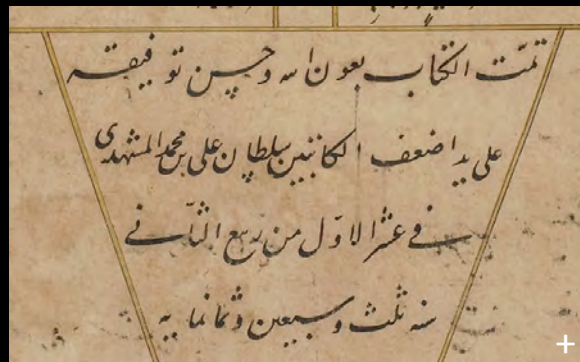 تمّت الکتاب بعون الله و حسن توفیقه
علی ید اضعف الکاتبین سلطان علی بن محمد المشهدی
فی عشر الاوّل من ربیع الثّانی
سنه ثلث و سبعین و ثمانمایه